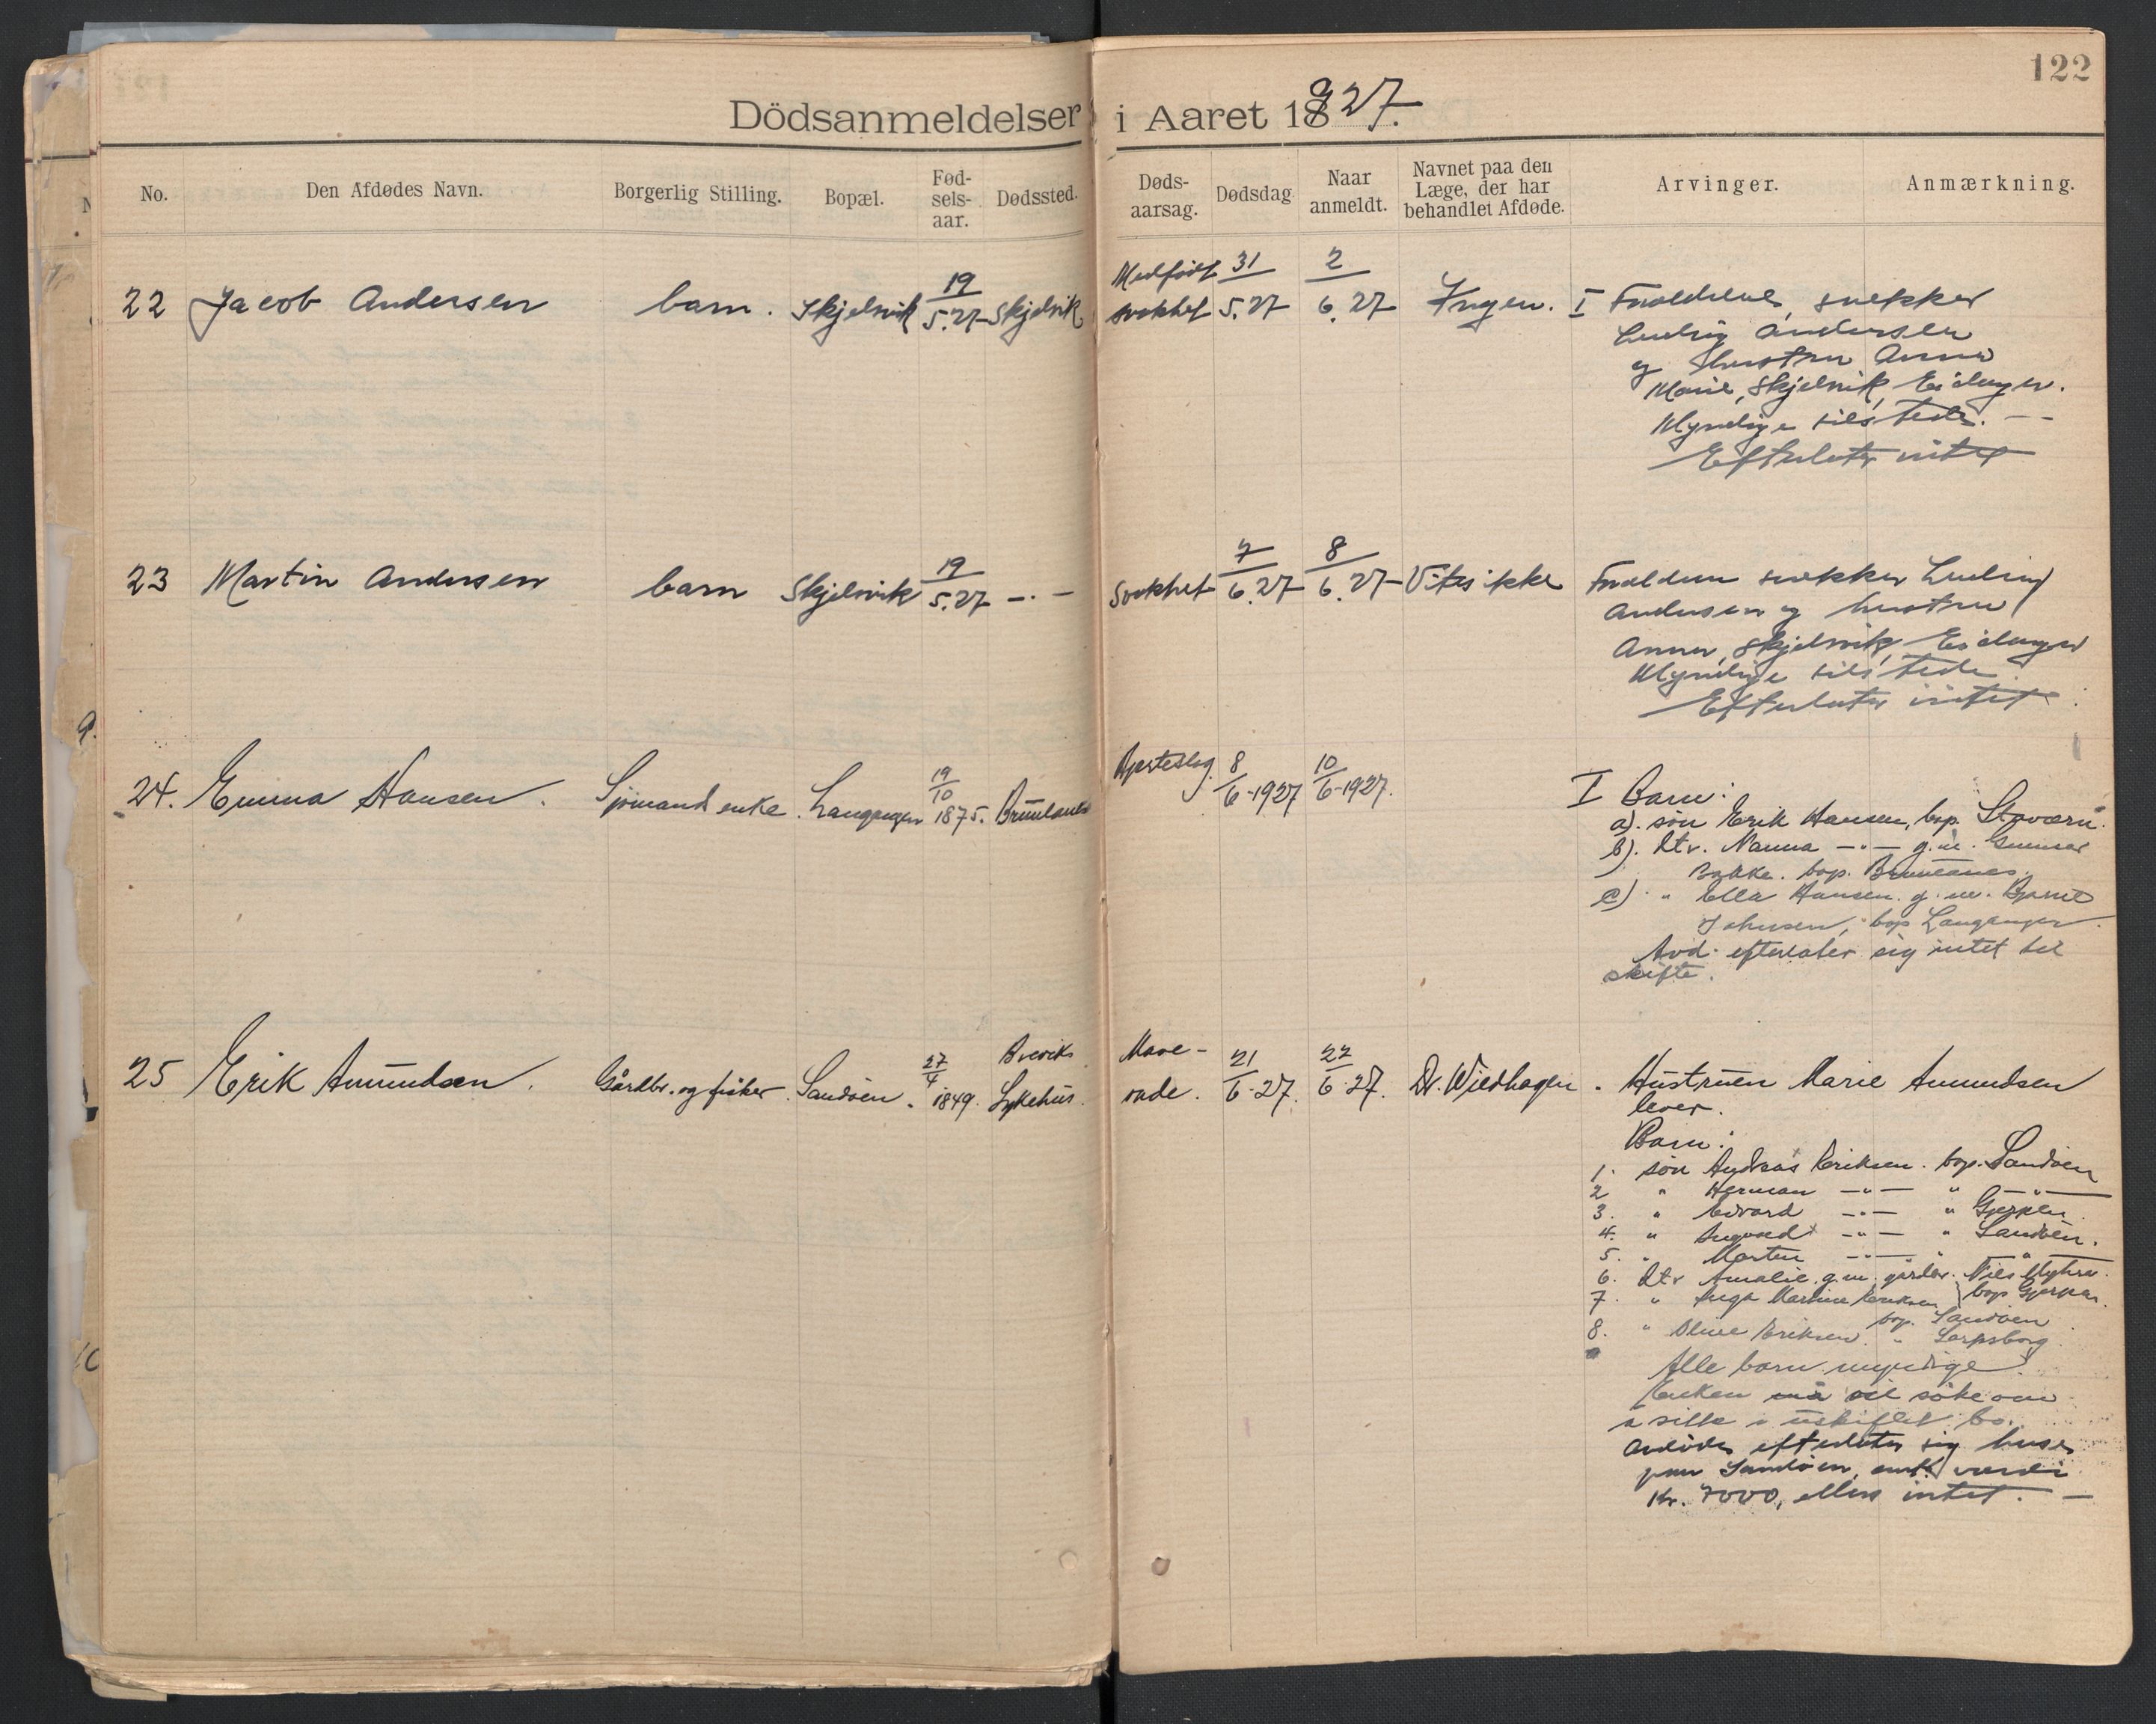 122
Dödsanmeldelser i Aaret 1927.
No. Den Afdødes Navn. Borgerlig Stilling. Bopæl. Fød-sels-aar. Dødssted. Døds-aarsag. Dødsdag Naar anmeldt. Navnet paa den Læge, der har behandlet Afdøde. Arvinger. Anmærkning.
22 Jacob Andersen barn. Skjelsvik 19/5.27 Skjelsvik Medfødt svakhet 31/5.27 2/6.27 Ingen. I Forældrene, snekker
Ludvig Andersen
og hustru Anna
Marie, Skjelsvik, Eidanger.
Myndige tilstede. —
Efterlater intet
23 Martin Andersen barn Skjelsvik 19/5.27 —·— Svakhet 7/6.27 8/6.27 Vites ikke Forældrene snekker Ludvig
Andersen og hustru
Anna, Skjelsvik, Eidanger
Myndige tilstede
Efterlater intet
24. Emma Hansen. Sjømand enke. Langangen 19/10 1875. Brunlanes Hjerteslag. 8/6-1927 10/6-1927. I Barn:
a). søn Erik Hansen, bop. Staværn.
b). dtr. Nanna —"— g.m. Gunnar
Bakke. bop. Brunlanes.
c) " Ella Hansen. g.m. Bjarne
Johnsen, bop Langangen
Avd. efterlater sig intet til
skifte.
25 Erik Amundsen. Gårdbr. og fisker. Sandøen. 27/4 1849. Breviks Sykehus. Mave-onde. 21/6-27. 22/6-27. Dr. Wiedhagen. Hustruen Marie Amundsen
lever.
Barn:
1. søn Andreas Eriksen. bop. Sandøen
2 " Herman —"— " —"—
3. " Edvard —"— " Gjerpen
4. " Ingvald —"— " Sandøen.
5. " Morten —"— " "
6. dtr Amalie. g.m. gårdbr. Nils Myhra.
7. " Inga Martine Eriksen bop Gjerpen.
bop. Sandøen
8. " Oline Eriksen. " Sarpsborg
Alle barn myndige.
Enken vil söke om
å sitte i uskiftet bo.
Avdøde efterlater sig huse
paa Sandøen, ant. værdi
Kr. 7000, ellers intet. —